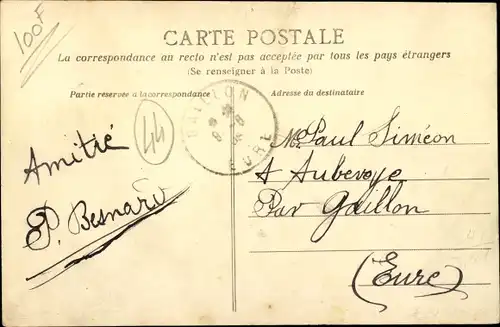 100F
CARTE POSTALE
La correspondance au recto n'est pas acceptée par tous les pays étrangers
(Se renseigner à la Poste)
Partie réservée a la correspondance
Adresse du destinataire
GAILLON
EURE
44
Amitié
P. Besnard
M. Paul Siméon
A Aubevoye
Par Gaillon
(Eure)